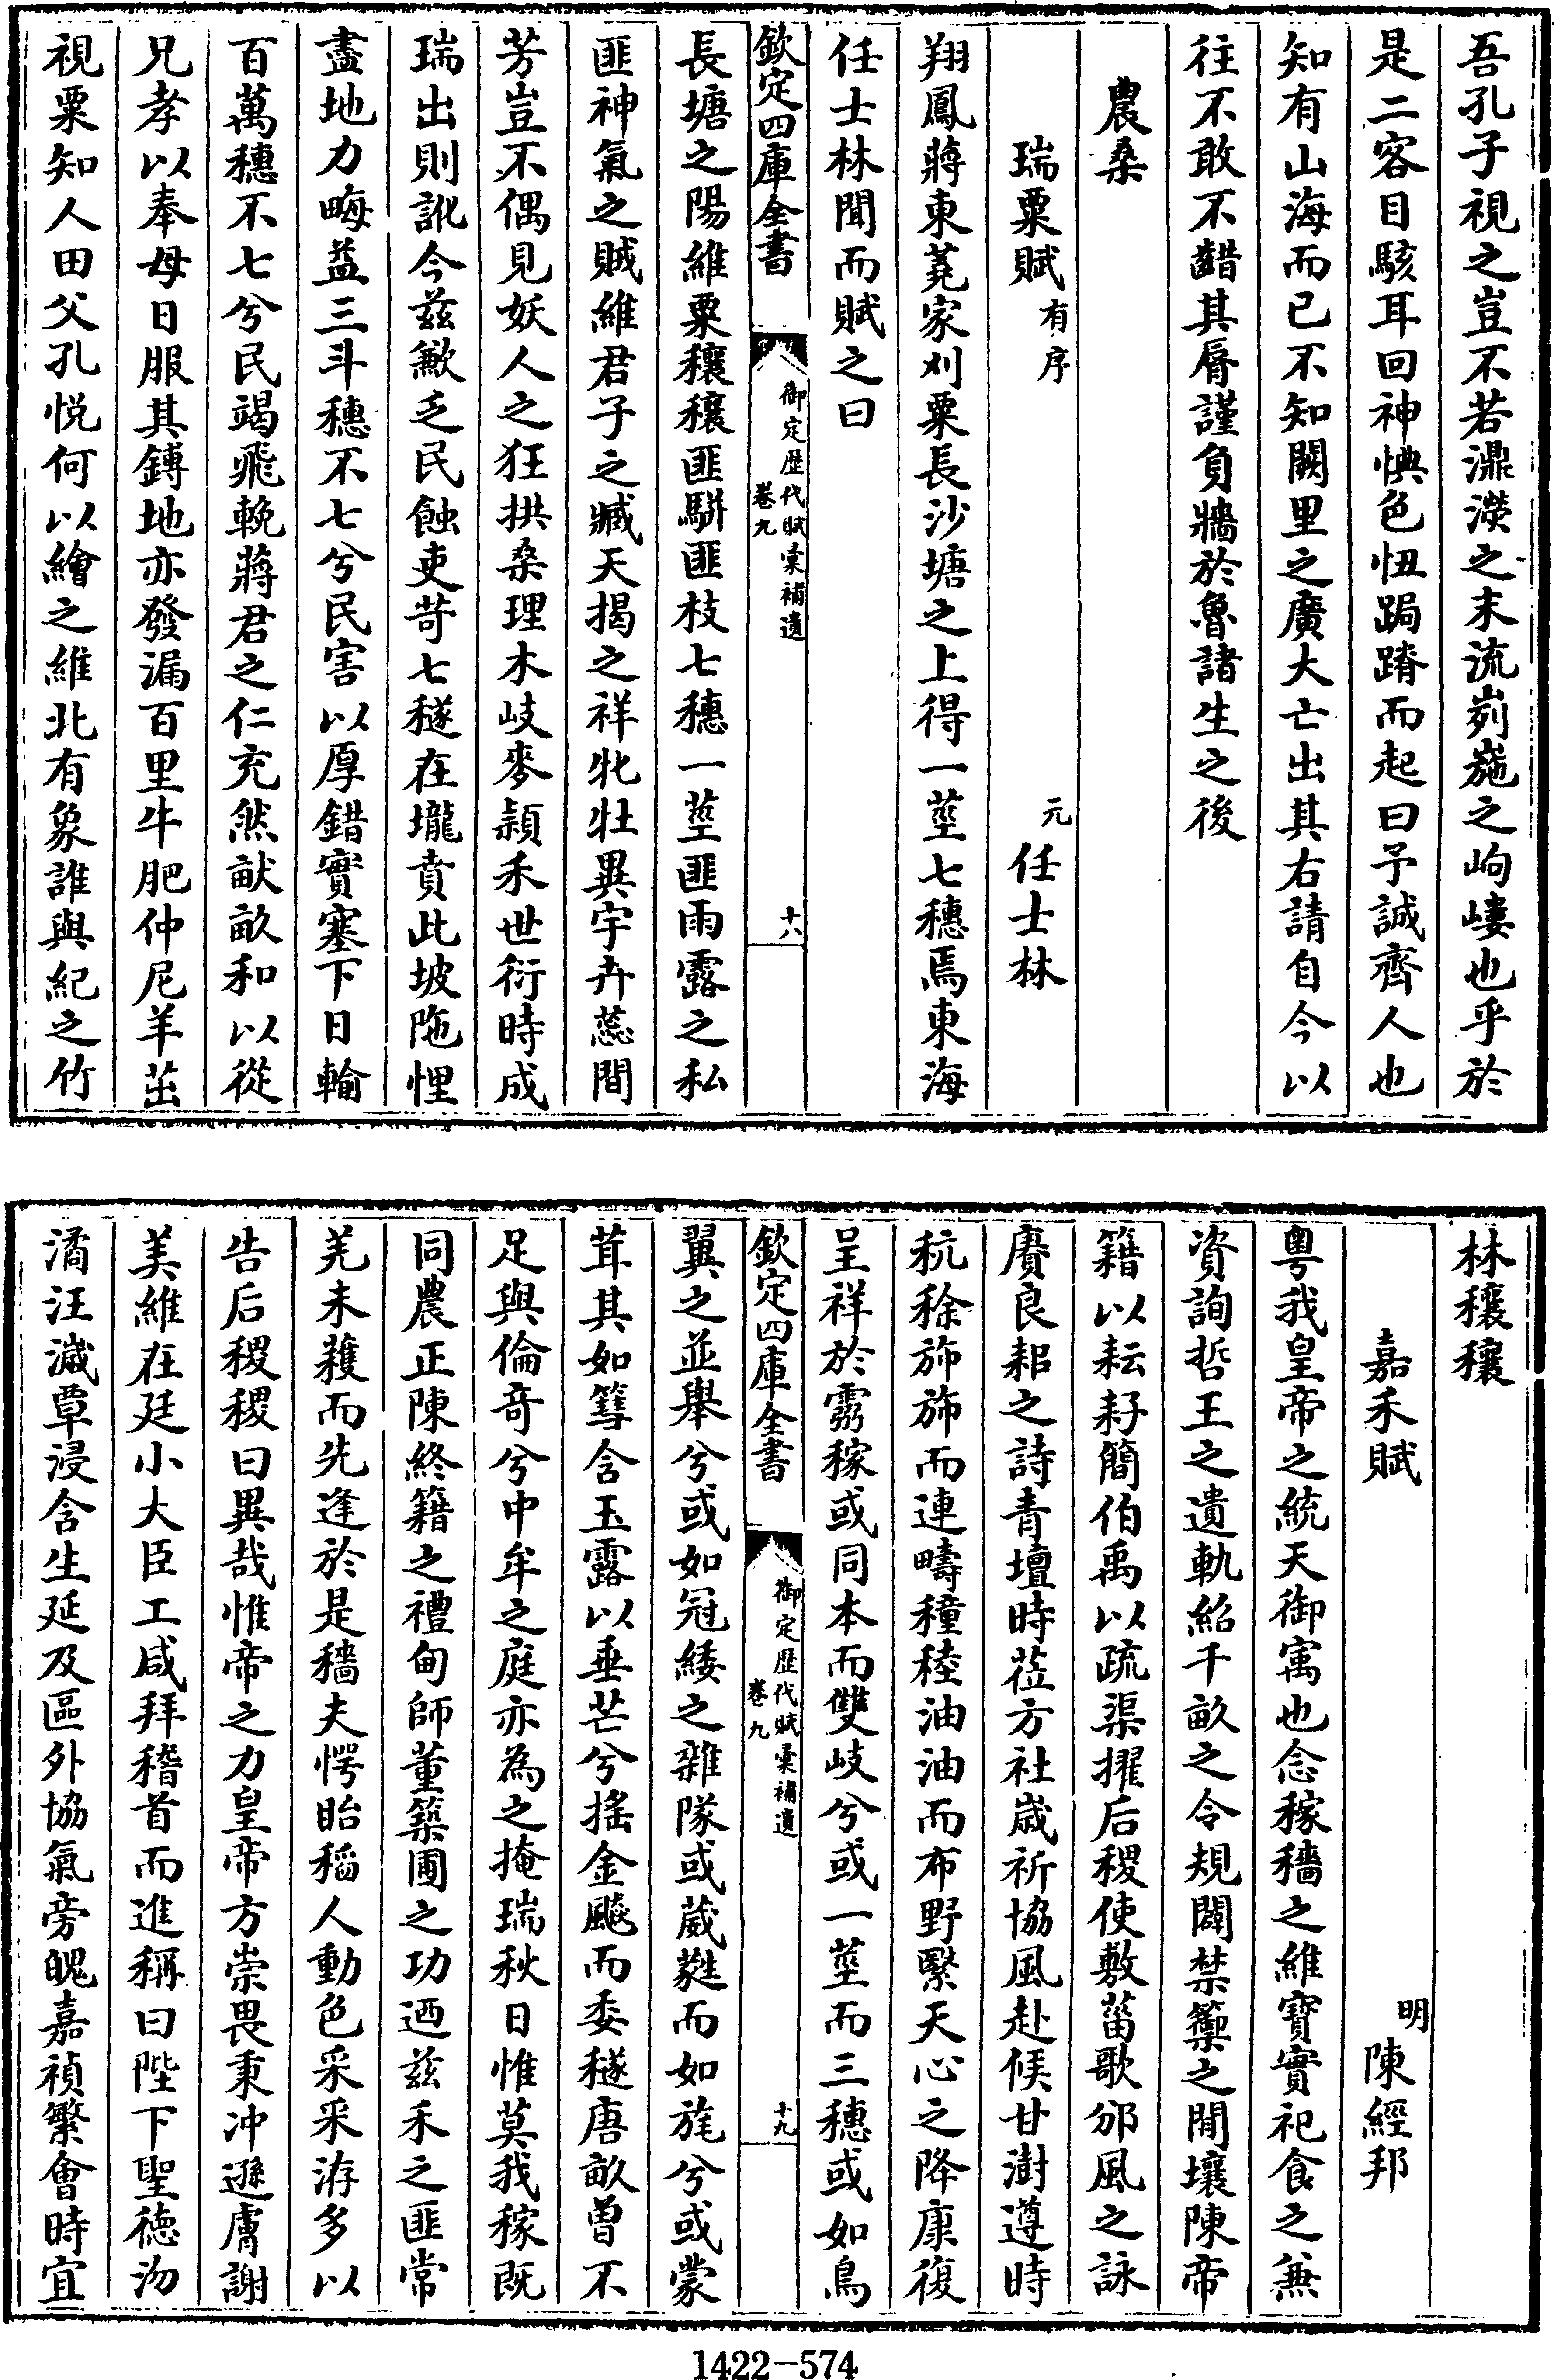 吾孔子視之豈不若濎濴之末流峛崺之岣嶁也乎於
是二客目駭耳回神㥏色忸跼蹐而起曰予誠齊人也
知有山海而已不知闕里之廣大亡出其右請自今以
往不敢不齰其脣謹負牆於魯諸生之後
農桑
瑞粟賦有序 元 任士林
翔鳳蔣東莪家刈粟長沙塘之上得一莖七穗焉東海
任士林聞而賦之曰
欽定四庫全書 御定歴代賦彙補遺 卷九 十八
長塘之陽維粟穰穰匪駢匪枝七穗一莖匪雨露之私
匪神氣之賊維君子之臧天揭之祥牝牡異宇卉蕊間
芳豈不偶見妖人之狂拱桑理木岐麥頴禾世衍時成
瑞出則訛今兹歉乏民蝕吏苛七穟在壠賁此坡陁悝
盡地力畮益三斗穗不七兮民害以厚錯實塞下日輸
百萬穗不七兮民竭飛輓蔣君之仁充然畎畝和以從
兄孝以奉母日服其鎛地亦發漏百里牛肥仲尼羊茁
視粟知人田父孔悦何以繪之維北有象誰與紀之竹
林穰穰
嘉禾賦 明 陳經邦
粤我皇帝之統天御寓也念稼穡之維寶實祀食之兼
資詢哲王之遺軌紹千畝之令規闢禁籞之閒壤陳帝
籍以耘耔簡伯禹以疏渠擢后稷使敷菑歌邠風之詠
賡良耜之詩青壇時莅方社歲祈協風赴候甘澍遵時
秔稌斾斾而連疇穜稑油油而布野緊天心之降康復
呈祥於霛稼或同本而雙岐兮或一莖而三穗或如鳥
欽定四庫全書 御定歴代賦彙補遺 卷九 十九
翼之並舉兮或如冠緌之雜隊或葳蕤而如旄兮或蒙
茸其如篲含玉露以垂芒兮搖金飈而委穟唐畝曾不
足與倫竒兮中牟之庭亦為之掩瑞秋日惟莫我稼既
同農正陳終籍之禮甸師董築圃之功迺兹禾之匪常
羌未穫而先逢於是穡夫愕眙稻人動色采采洊多以
告后稷稷曰異哉惟帝之力皇帝方崇畏秉冲遜膚謝
美維在廷小大臣工咸拜稽首而進稱曰陛下聖德沕
潏汪濊覃浸含生延及區外協氣旁魄嘉禎繁會時宜
1422-574